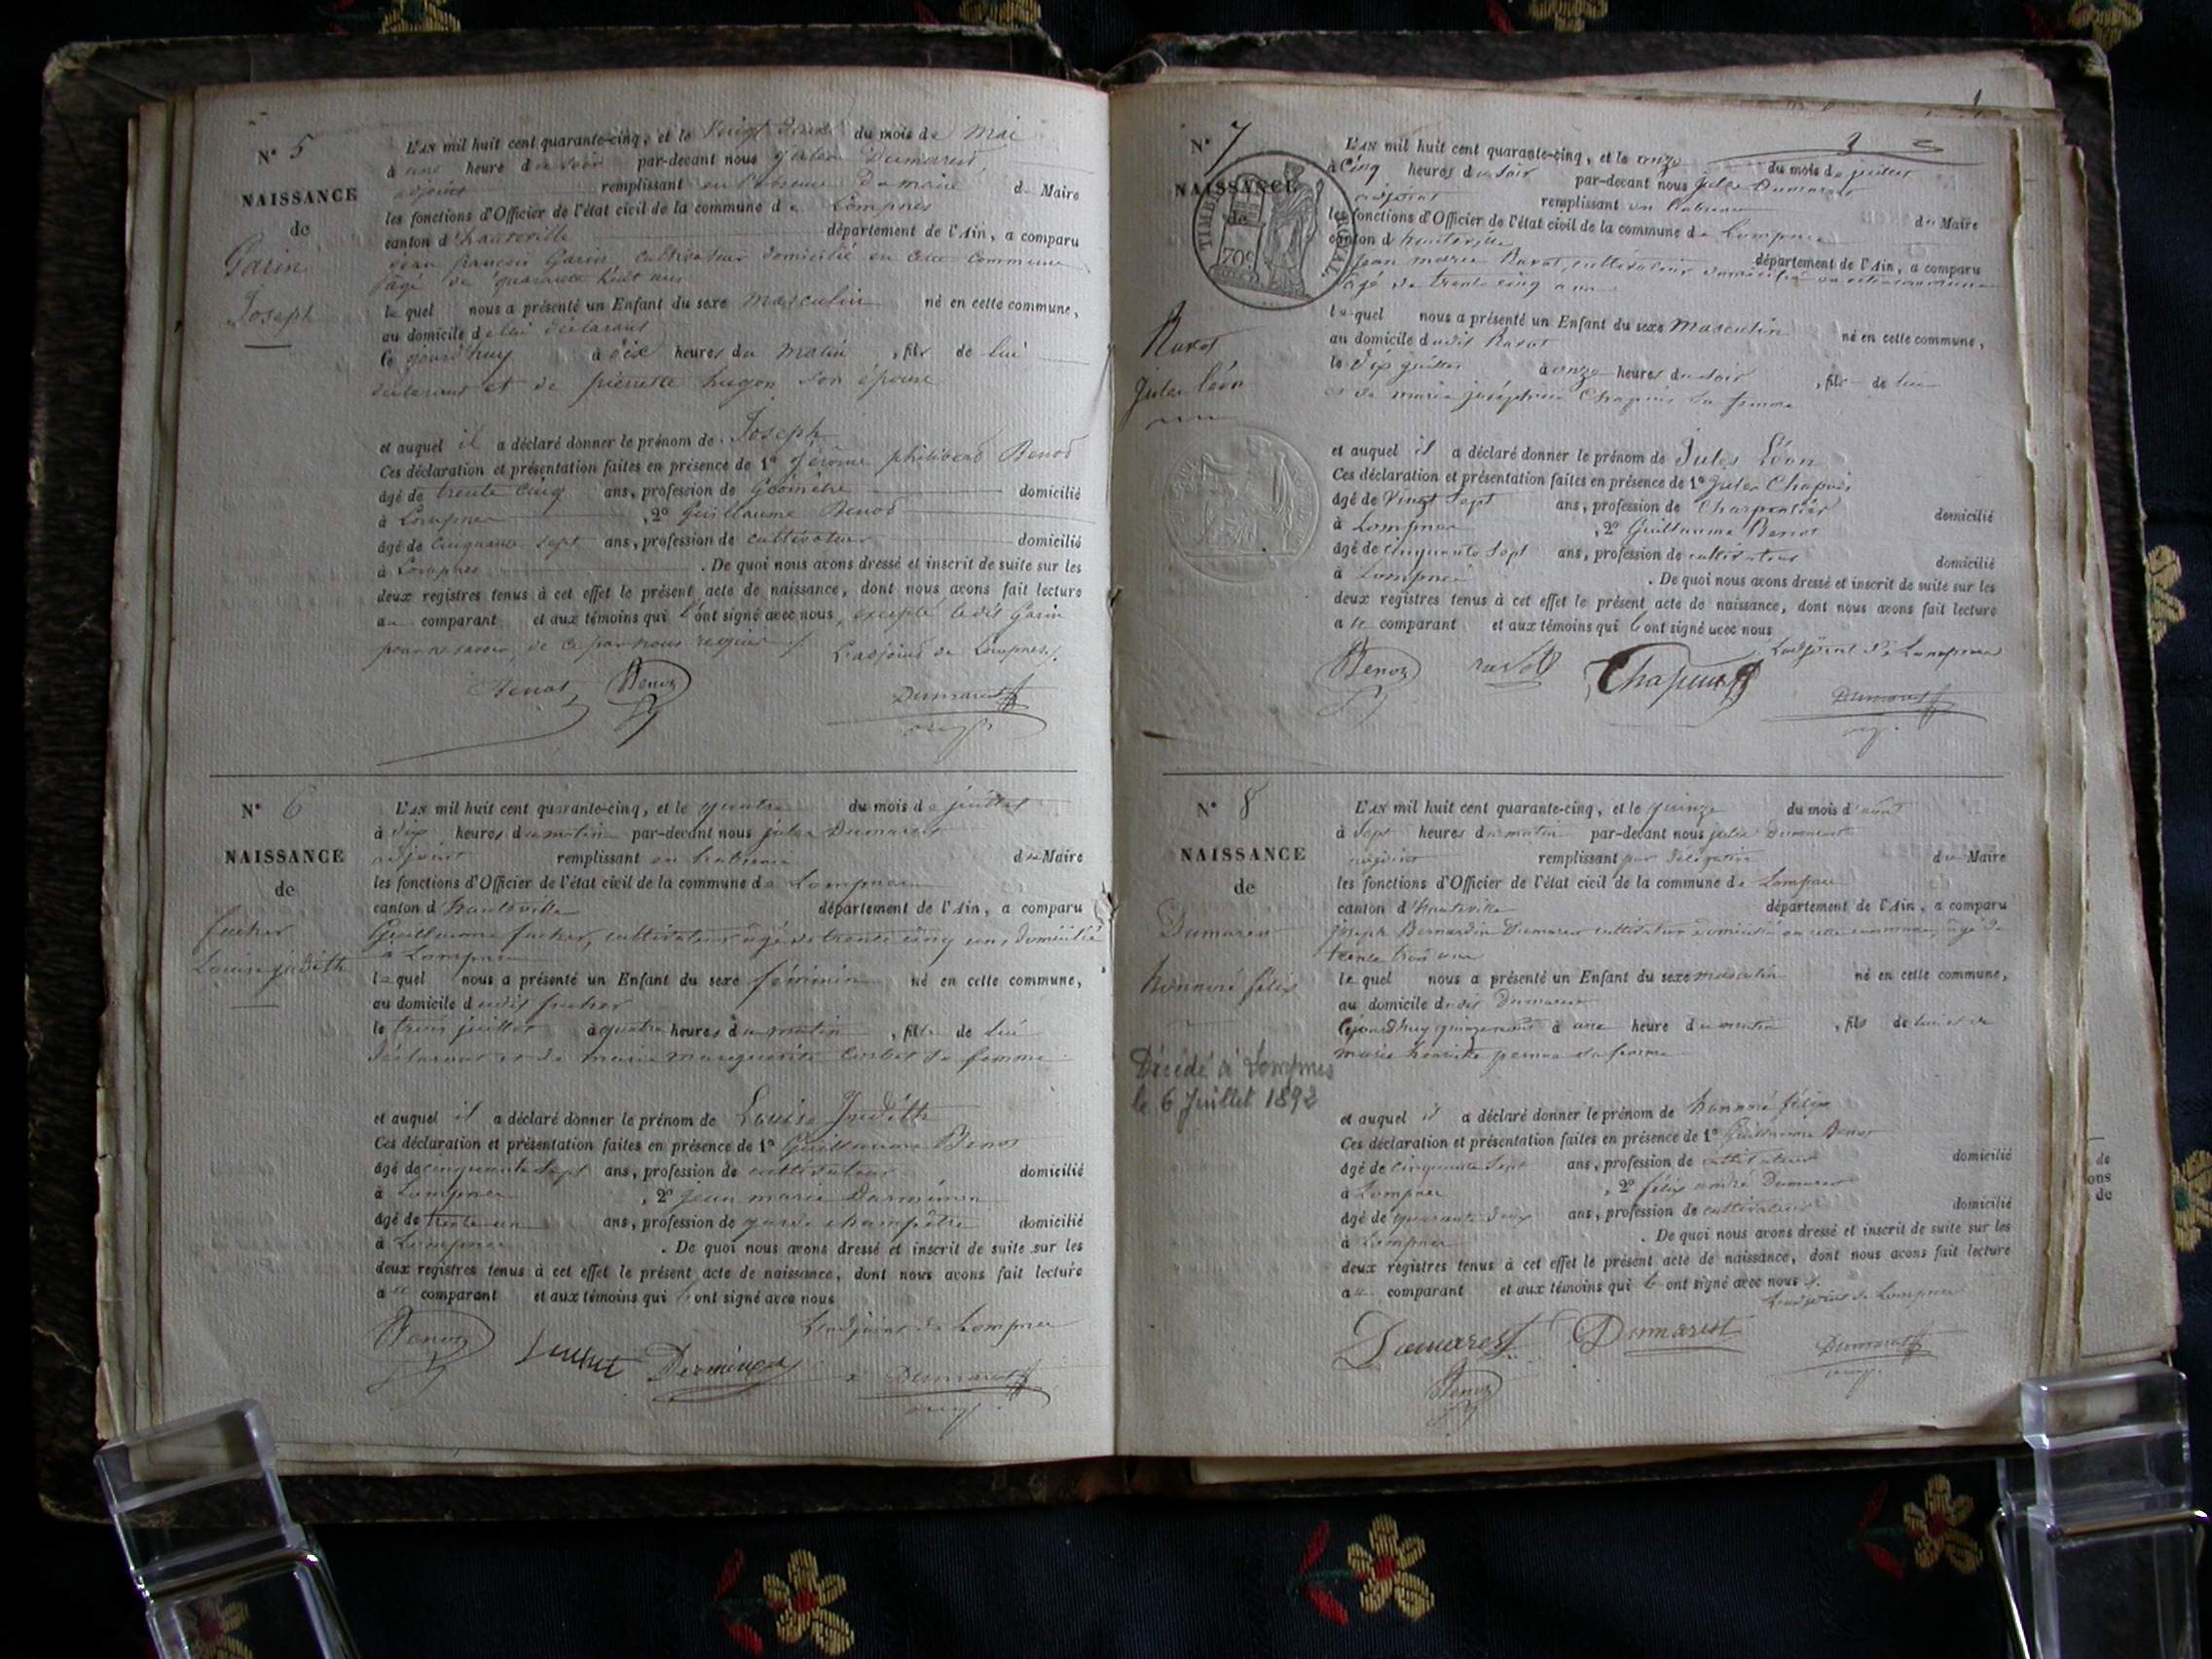 N° 5
NAISSANCE
de
Garin
Joseph
L'AN mil huit cent quarante-cinq, et le vingt deux du mois de mai
à une heure du soir par-devant nous jules Dumarest
adjoint remplissant en l'absence du maire du Maire
les fonctions d'Officier de l'état civil de la commune de Lompnes
canton d'hauteville département de l'Ain, a comparu
jean françois Garin cultivateur domicilié en cette commune
âgé de quarante huit ans
lequel nous a présenté un Enfant du sexe masculin né en cette commune,
au domicile de lui déclarant
ce jourd'huy à dix heures du matin, fils de lui
déclarant et de pierrette hugon son épouse
et auquel il a déclaré donner le prénom de Joseph
Ces déclaration et présentation faites en présence de 1° jérôme philibert Benod
âgé de trente cinq ans, profession de Géomètre domicilié
à Lompnes, 2° Guillaume Benod
âgé de cinquante sept ans, profession de cultivateur domicilié
à Lompnes. De quoi nous avons dressé et inscrit de suite sur les
deux registres tenus à cet effet le présent acte de naissance, dont nous avons fait lecture
au comparant et aux témoins qui l'ont signé avec nous, excepté ledit Garin
pour ne savoir, de ce par nous requis ./. L'adjoint de Lompnes ./.
Benod Benoz Dumarest
N° 6
NAISSANCE
de
fucher
Louise judith
L'AN mil huit cent quarante-cinq, et le quatre du mois de juillet
à dix heures du matin par-devant nous jules Dumarest
adjoint remplissant en l'absence du Maire
les fonctions d'Officier de l'état civil de la commune de Lompnes
canton d'hauteville département de l'Ain, a comparu
Guillaume fucher, cultivateur âgé de trente cinq ans, domicilié
à Lompnes
lequel nous a présenté un Enfant du sexe féminin né en cette commune,
au domicile dudit fucher
le trois juillet à quatre heures du matin, fille de lui
déclarant et de marie marguerite sa femme
et auquel il a déclaré donner le prénom de Louise Judith
Ces déclaration et présentation faites en présence de 1° Guillaume Benod
âgé de cinquante sept ans, profession de cultivateur domicilié
à Lompnes, 2° jean marie
âgé de trente un ans, profession de garde champêtre domicilié
à Lompnes. De quoi nous avons dressé et inscrit de suite sur les
deux registres tenus à cet effet le présent acte de naissance, dont nous avons fait lecture
au comparant et aux témoins qui l'ont signé avec nous
L'adjoint de Lompnes
Benoz Dumarest
3
N° 7
NAISSANCE
de
TIMBRE ROYAL
70c
Ravot
jules léon
L'AN mil huit cent quarante-cinq, et le onze du mois de juillet
à cinq heures du soir par-devant nous jules Dumarest
adjoint remplissant en l'absence du Maire
les fonctions d'Officier de l'état civil de la commune de Lompnes
canton d'hauteville département de l'Ain, a comparu
jean marie Ravot, cultivateur domicilié en cette commune
âgé de trente cinq ans
lequel nous a présenté un Enfant du sexe masculin né en cette commune,
au domicile dudit Ravot
le dix juillet à onze heures du soir, fils de lui
et de marie joséphine Chapuis sa femme
et auquel il a déclaré donner le prénom de Jules Léon
Ces déclaration et présentation faites en présence de 1° jules Chapuis
âgé de vingt sept ans, profession de Charpentier domicilié
à Lompnes, 2° Guillaume Benod
âgé de cinquante sept ans, profession de cultivateur domicilié
à Lompnes. De quoi nous avons dressé et inscrit de suite sur les
deux registres tenus à cet effet le présent acte de naissance, dont nous avons fait lecture
a le comparant et aux témoins qui l'ont signé avec nous
L'adjoint de Lompnes
Benoz ravot Chapuis Dumarest
N° 8
NAISSANCE
de
Dumarest
honnoré félix
Décédé à Lompnes
le 6 Juillet 1892
L'AN mil huit cent quarante-cinq, et le quinze du mois d'août
à sept heures du matin par-devant nous jules Dumarest
adjoint remplissant par délégation du Maire
les fonctions d'Officier de l'état civil de la commune de Lompnes
canton d'hauteville département de l'Ain, a comparu
joseph Bernardin Dumarest cultivateur domicilié en cette commune, âgé de
trente trois ans
lequel nous a présenté un Enfant du sexe masculin né en cette commune,
au domicile dudit Dumarest
cejourd'huy quinze août à une heure du matin, fils de lui et de
marie henriette sa femme
et auquel il a déclaré donner le prénom de honnoré félix
Ces déclaration et présentation faites en présence de 1° Guillaume Benod
âgé de cinquante sept ans, profession de cultivateur domicilié
à Lompnes, 2° félix andré Dumarest
âgé de quarante deux ans, profession de cultivateur domicilié
à Lompnes. De quoi nous avons dressé et inscrit de suite sur les
deux registres tenus à cet effet le présent acte de naissance, dont nous avons fait lecture
au comparant et aux témoins qui l'ont signé avec nous ./.
L'adjoint de Lompnes
Dumarest Dumarest Dumarest
Benoz
de
ons
de